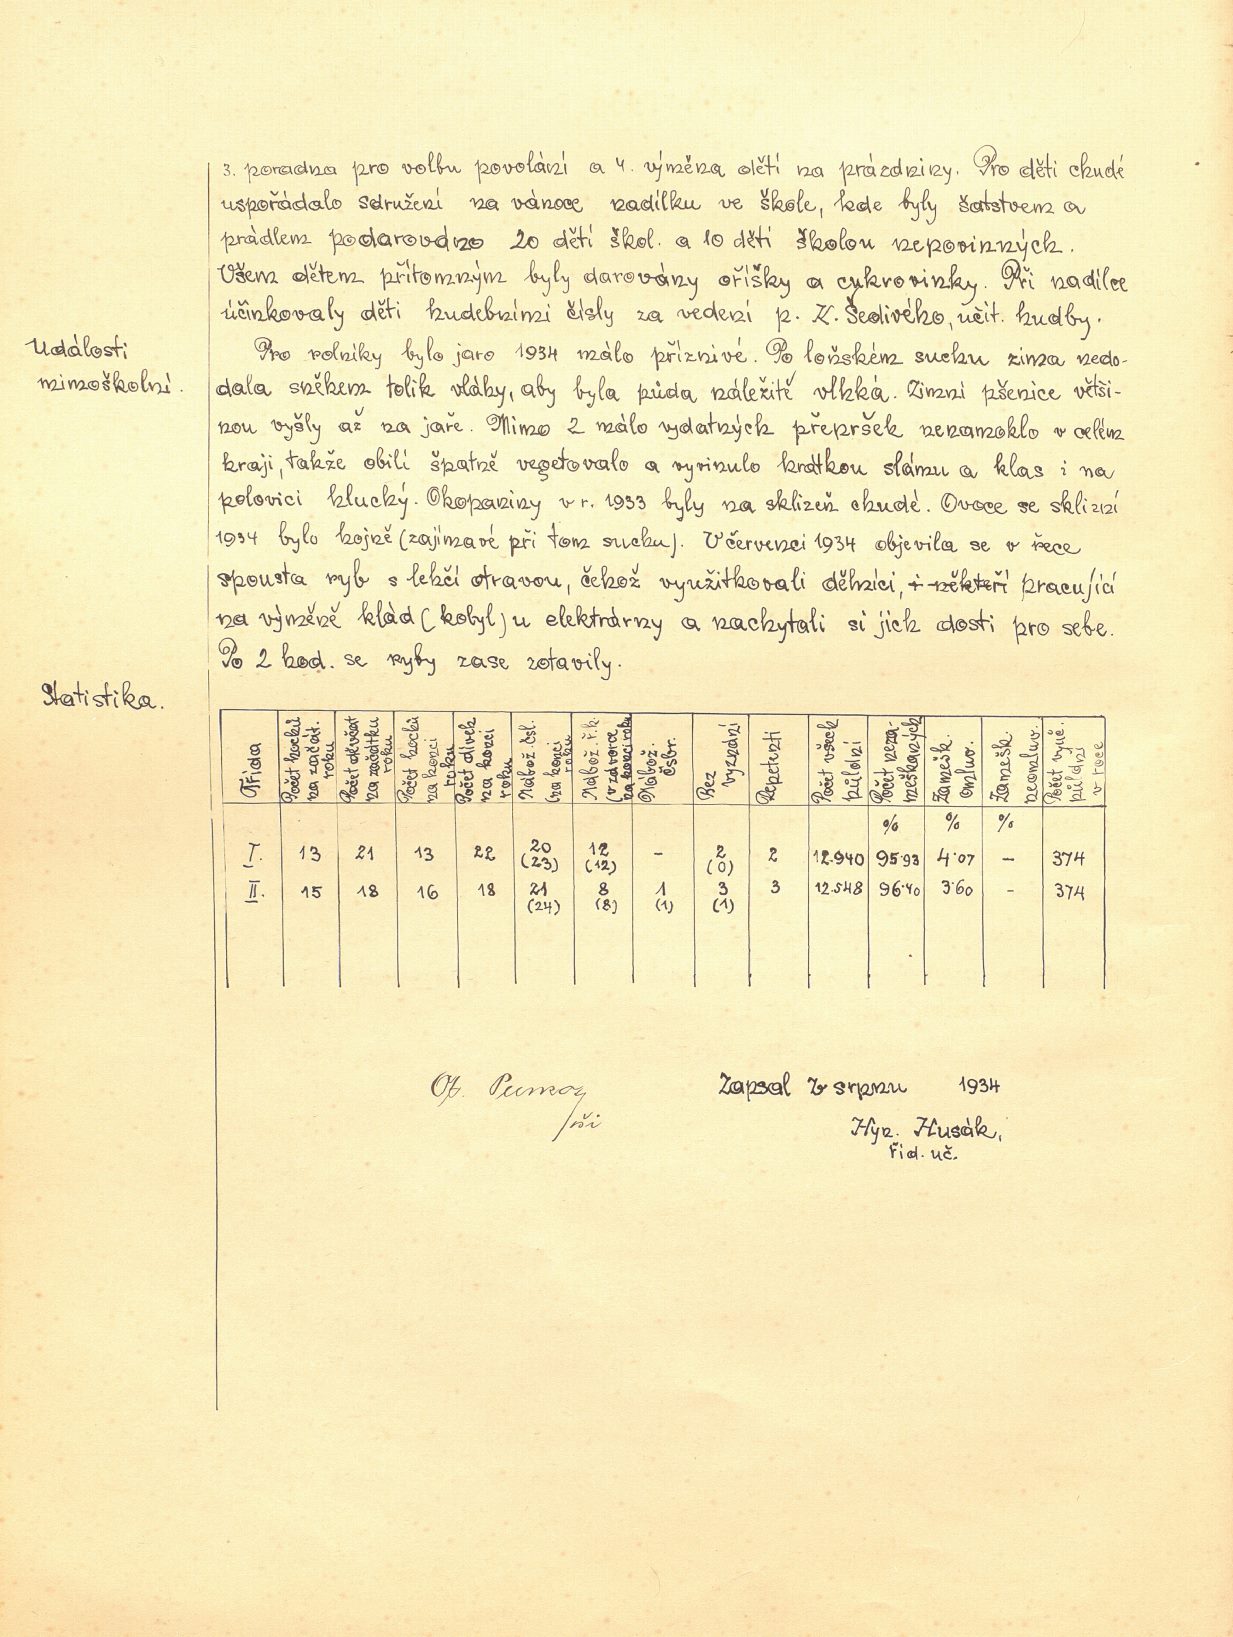 3. poradna pro volbu povolání a 4. výměna dětí na prázdniny. Pro děti chudé
uspořádalo sdružení na vánoce nadílku ve škole, kde byly šatstvem a
prádlem podarováno 20 dětí škol. a 10 dětí školou nepovinných.
Všem dětem přítomným byly darovány oříšky a cukrovinky. Při nadílce
účinkovaly děti hudebními čísly za vedení p. K. Šedivého, učit. hudby.
Události
mimoškolní.
Pro rolníky bylo jaro 1934 málo příznivé. Po loňském suchu zima nedo-
dala sněhem tolik vláhy, aby byla půda náležitě vlhká. Zimní pšenice větši-
nou vyšly až na jaře. Mimo 2 málo vydatných přepršek nenamoklo v celém
kraji, takže obilí špatně vegetovalo a vyvinulo krátkou slámu a klas i na
polovici hluchý. Okopaniny v r. 1933 byly na sklizeň chudé. Ovoce se sklizní
1934 bylo hojně (zajímavé při tom suchu). V červenci 1934 objevila se v řece
spousta ryb s lehčí otravou, čehož využitkovali dělníci, i někteří pracující
na výměně klád (kobyl) u elektrárny a nachytali si jich dosti pro sebe.
Po 2 hod. se ryby zase zotavily.
Statistika.
Třída Počet hochů na začát. roku Počet děvčat na začátku roku Počet hochů na konci roku Počet dívek na konci roku Nábož. čsl. (na konci roku Nábož. ř. k. (v závorce na konci roku Nábož. čsbr. Bez vyznání Repetenti Počet všech půldní Počet neza- meškaných Zamešk. omluv. Zamešk. neomluv. Počet vyuč. půldní v roce
% % %
I. 13 21 13 22 20 (23) 12 (12) - 2 (0) 2 12.940 95·93 4·07 - 374
II. 15 18 16 18 21 (24) 8 (8) 1 (1) 3 (1) 3 12.548 96·40 3·60 - 374
Zapsal v srpnu 1934
Hyn. Husák,
říd. uč.